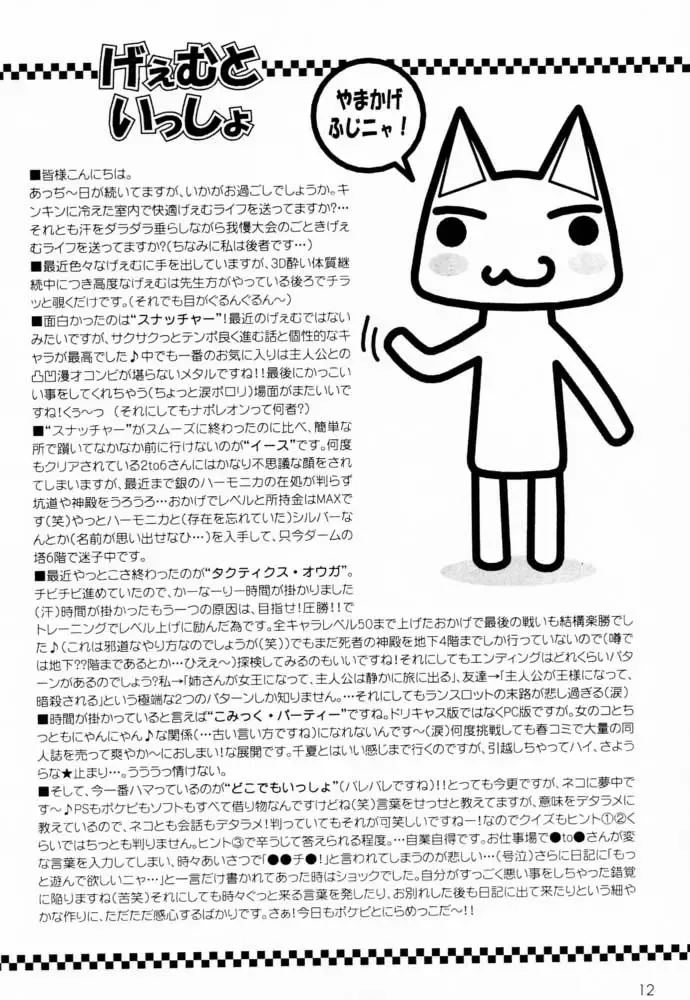 げぇむと
いっしょ
やまかげ
ふじニャ!
■皆様こんにちは。
あっぢ〜日が続いてますが、いかがお過ごしでしょうか。キ
ンキンに冷えた室内で快適げぇむライフを送ってますか?…
それとも汗をダラダラ垂らしながら我慢大会のごときげぇ
むライフを送ってますか?(ちなみに私は後者です…)
■最近色々なげぇむに手を出していますが、3D酔い体質継
続中につき高度なげぇむは先生方がやっている後ろでチラ
ッと覗くだけです。(それでも目がぐるんぐるん〜)
■面白かったのは“スナッチャー”!最近のげぇむではない
みたいですが、サクサクっとテンポ良く進む話と個性的なキ
ャラが最高でした♪中でも一番のお気に入りは主人公との
凸凹漫才コンビが堪らないメタルですね!!最後にかっこい
い事をしてくれちゃう(ちょっと涙ポロリ)場面がまたいいで
すね!くぅ〜っ (それにしてもナポレオンって何者?)
■“スナッチャー”がスムーズに終わったのに比べ、簡単な
所で躓いてなかなか前に行けないのが“イース”です。何度
もクリアされている2to6さんにはかなり不思議な顔をされ
てしまいますが、最近まで銀のハーモニカの在処が判らず
坑道や神殿をうろうろ…おかげでレベルと所持金はMAXで
す(笑)やっとハーモニカと(存在を忘れていた)シルバーな
んとか(名前が思い出せなひ…)を入手して、只今ダームの
塔6階で迷子中です。
■最近やっとこさ終わったのが“タクティクス・オウガ”。
チビチビ進めていたので、かーなーりー時間が掛かりました
(汗)時間が掛かったもう一つの原因は、目指せ!圧勝!!で
トレーニングでレベル上げに励んだ為です。全キャラレベル50まで上げたおかげで最後の戦いも結構楽勝でし
た♪(これは邪道なやり方なのでしょうが(笑))でもまだ死者の神殿を地下4階までしか行っていないので(噂で
は地下??階まであるとか…ひええ〜)探検してみるのもいいですね!それにしてもエンディングはどれくらいパタ
ーンがあるのでしょう?私→「姉さんが女王になって、主人公は静かに旅に出る」、友達→「主人公が王様になって、
暗殺される」という極端な2つのパターンしか知りません。…それにしてもランスロットの末路が悲し過ぎる(涙)
■時間が掛かっていると言えば“こみっく・パーティー”ですね。ドリキャス版ではなくPC版ですが。女のコとちっ
ともにゃんにゃん♪な関係(…古い言い方ですな)になれないんです〜(涙)何度挑戦しても春コミで大量の同
人誌を売って爽やか〜におしまい!な展開です。千夏とはいい感じまで行くのですが、引越しちゃってハイ、さようら
な★止まり…。うううっ情けない。
■そして、今一番ハマっているのが“どこでもいっしょ”(バレバレですね)!!とっても今更ですが、ネコに夢中で
す〜♪PSもポケピもソフトもすべて借り物なんですけどね(笑)言葉をせっせと教えてますが、意味をデタラメに
教えているので、ネコとも会話もデタラメ!判っていてもそれが可笑しいですねー!なのでクイズもヒント①②く
らいではちっとも判りません。ヒント③で辛うじて答えられる程度。…自業自得です。お仕事場で●to●さんが変
な言葉を入力してしまい、時々あいさつで「●●チ●!」と言われてしまうのが悲しい…(号泣)さらに日記に「もっ
と遊んで欲しいニャ…」と一言だけ書かれてあった時はショックでした。自分がすっごく悪い事をしちゃった錯覚
に陥りますね(苦笑)それにしても時々ぐっと来る言葉を発したり、お別れした後も日記に出て来たりという細や
かな作りに、ただただ感心するばかりです。さぁ!今日もポケピとにらめっこだ〜!!
12